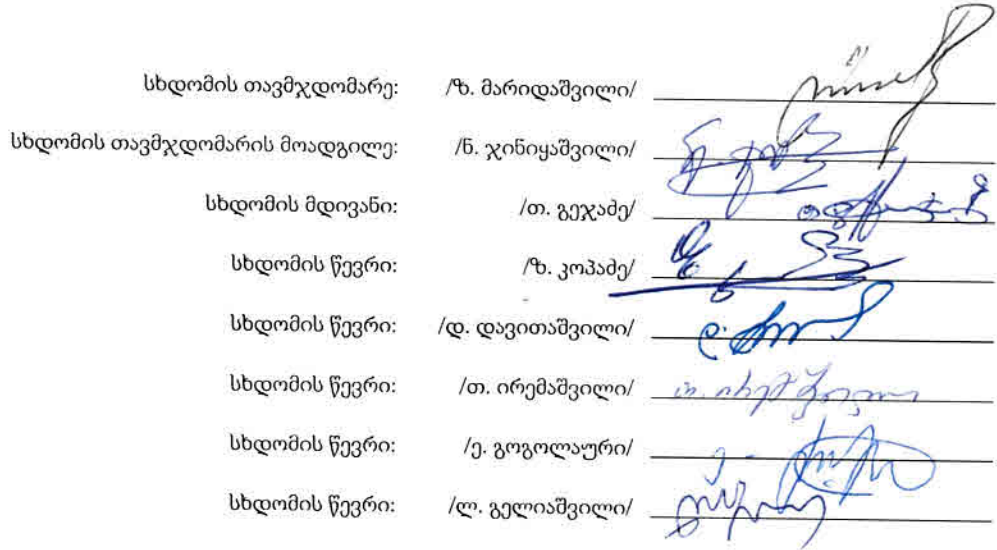 სხდომის თავმჯდომარე: /ზ. მარიდაშვილი/
სხდომის თავმჯდომარის მოადგილე: /ნ. ჯინიყაშვილი/
სხდომის მდივანი: /თ. გეჯაძე/
სხდომის წევრი: /ზ. კოპაძე/
სხდომის წევრი: /დ. დავითაშვილი/
სხდომის წევრი: /თ. ირემაშვილი/
სხდომის წევრი: /ე. გოგოლაური/
სხდომის წევრი: /ლ. გელიაშვილი/